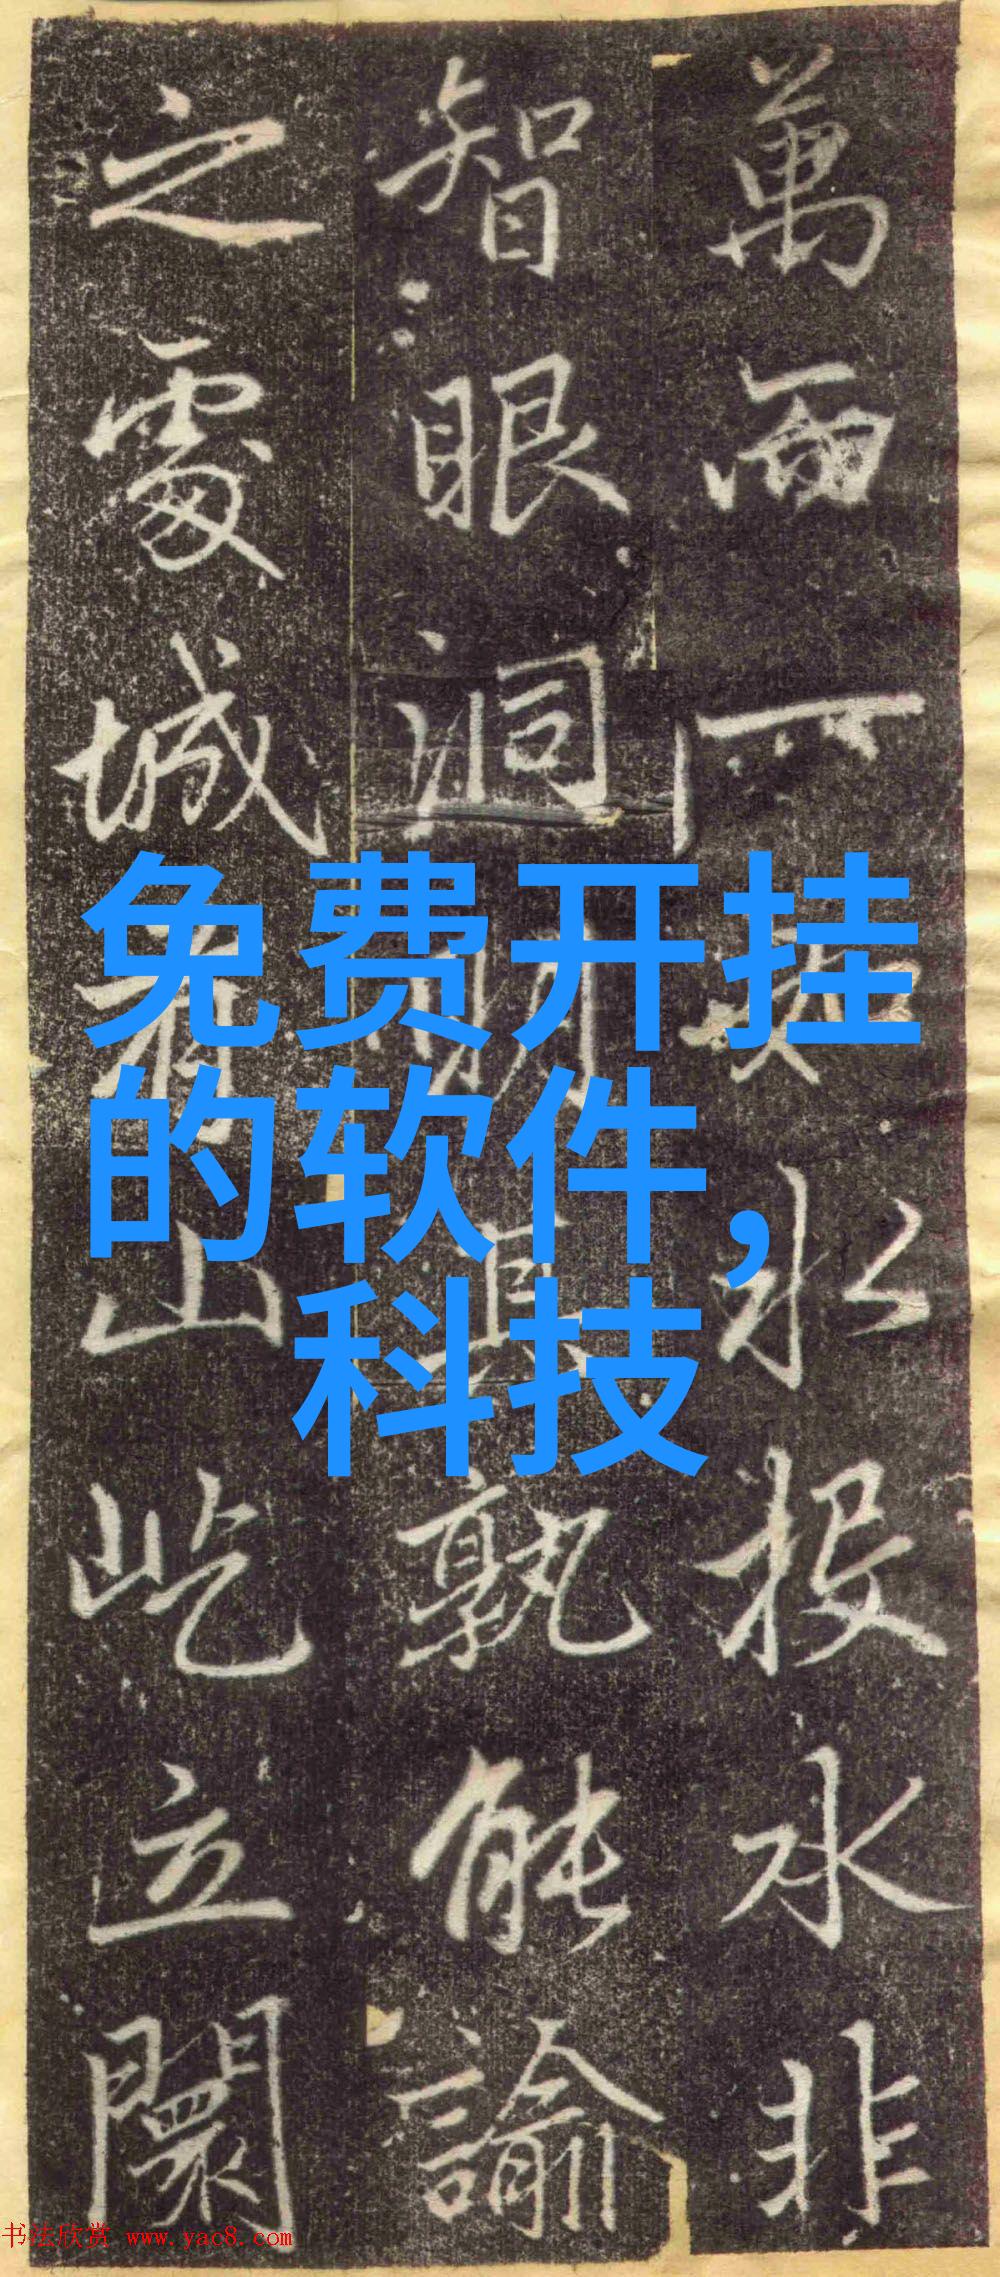 萬而一如水投水非
智眼洞明其孰能諭
之處城山屹立闤
免费开挂
的软件，
科技
书法欣赏 www.yac8.com